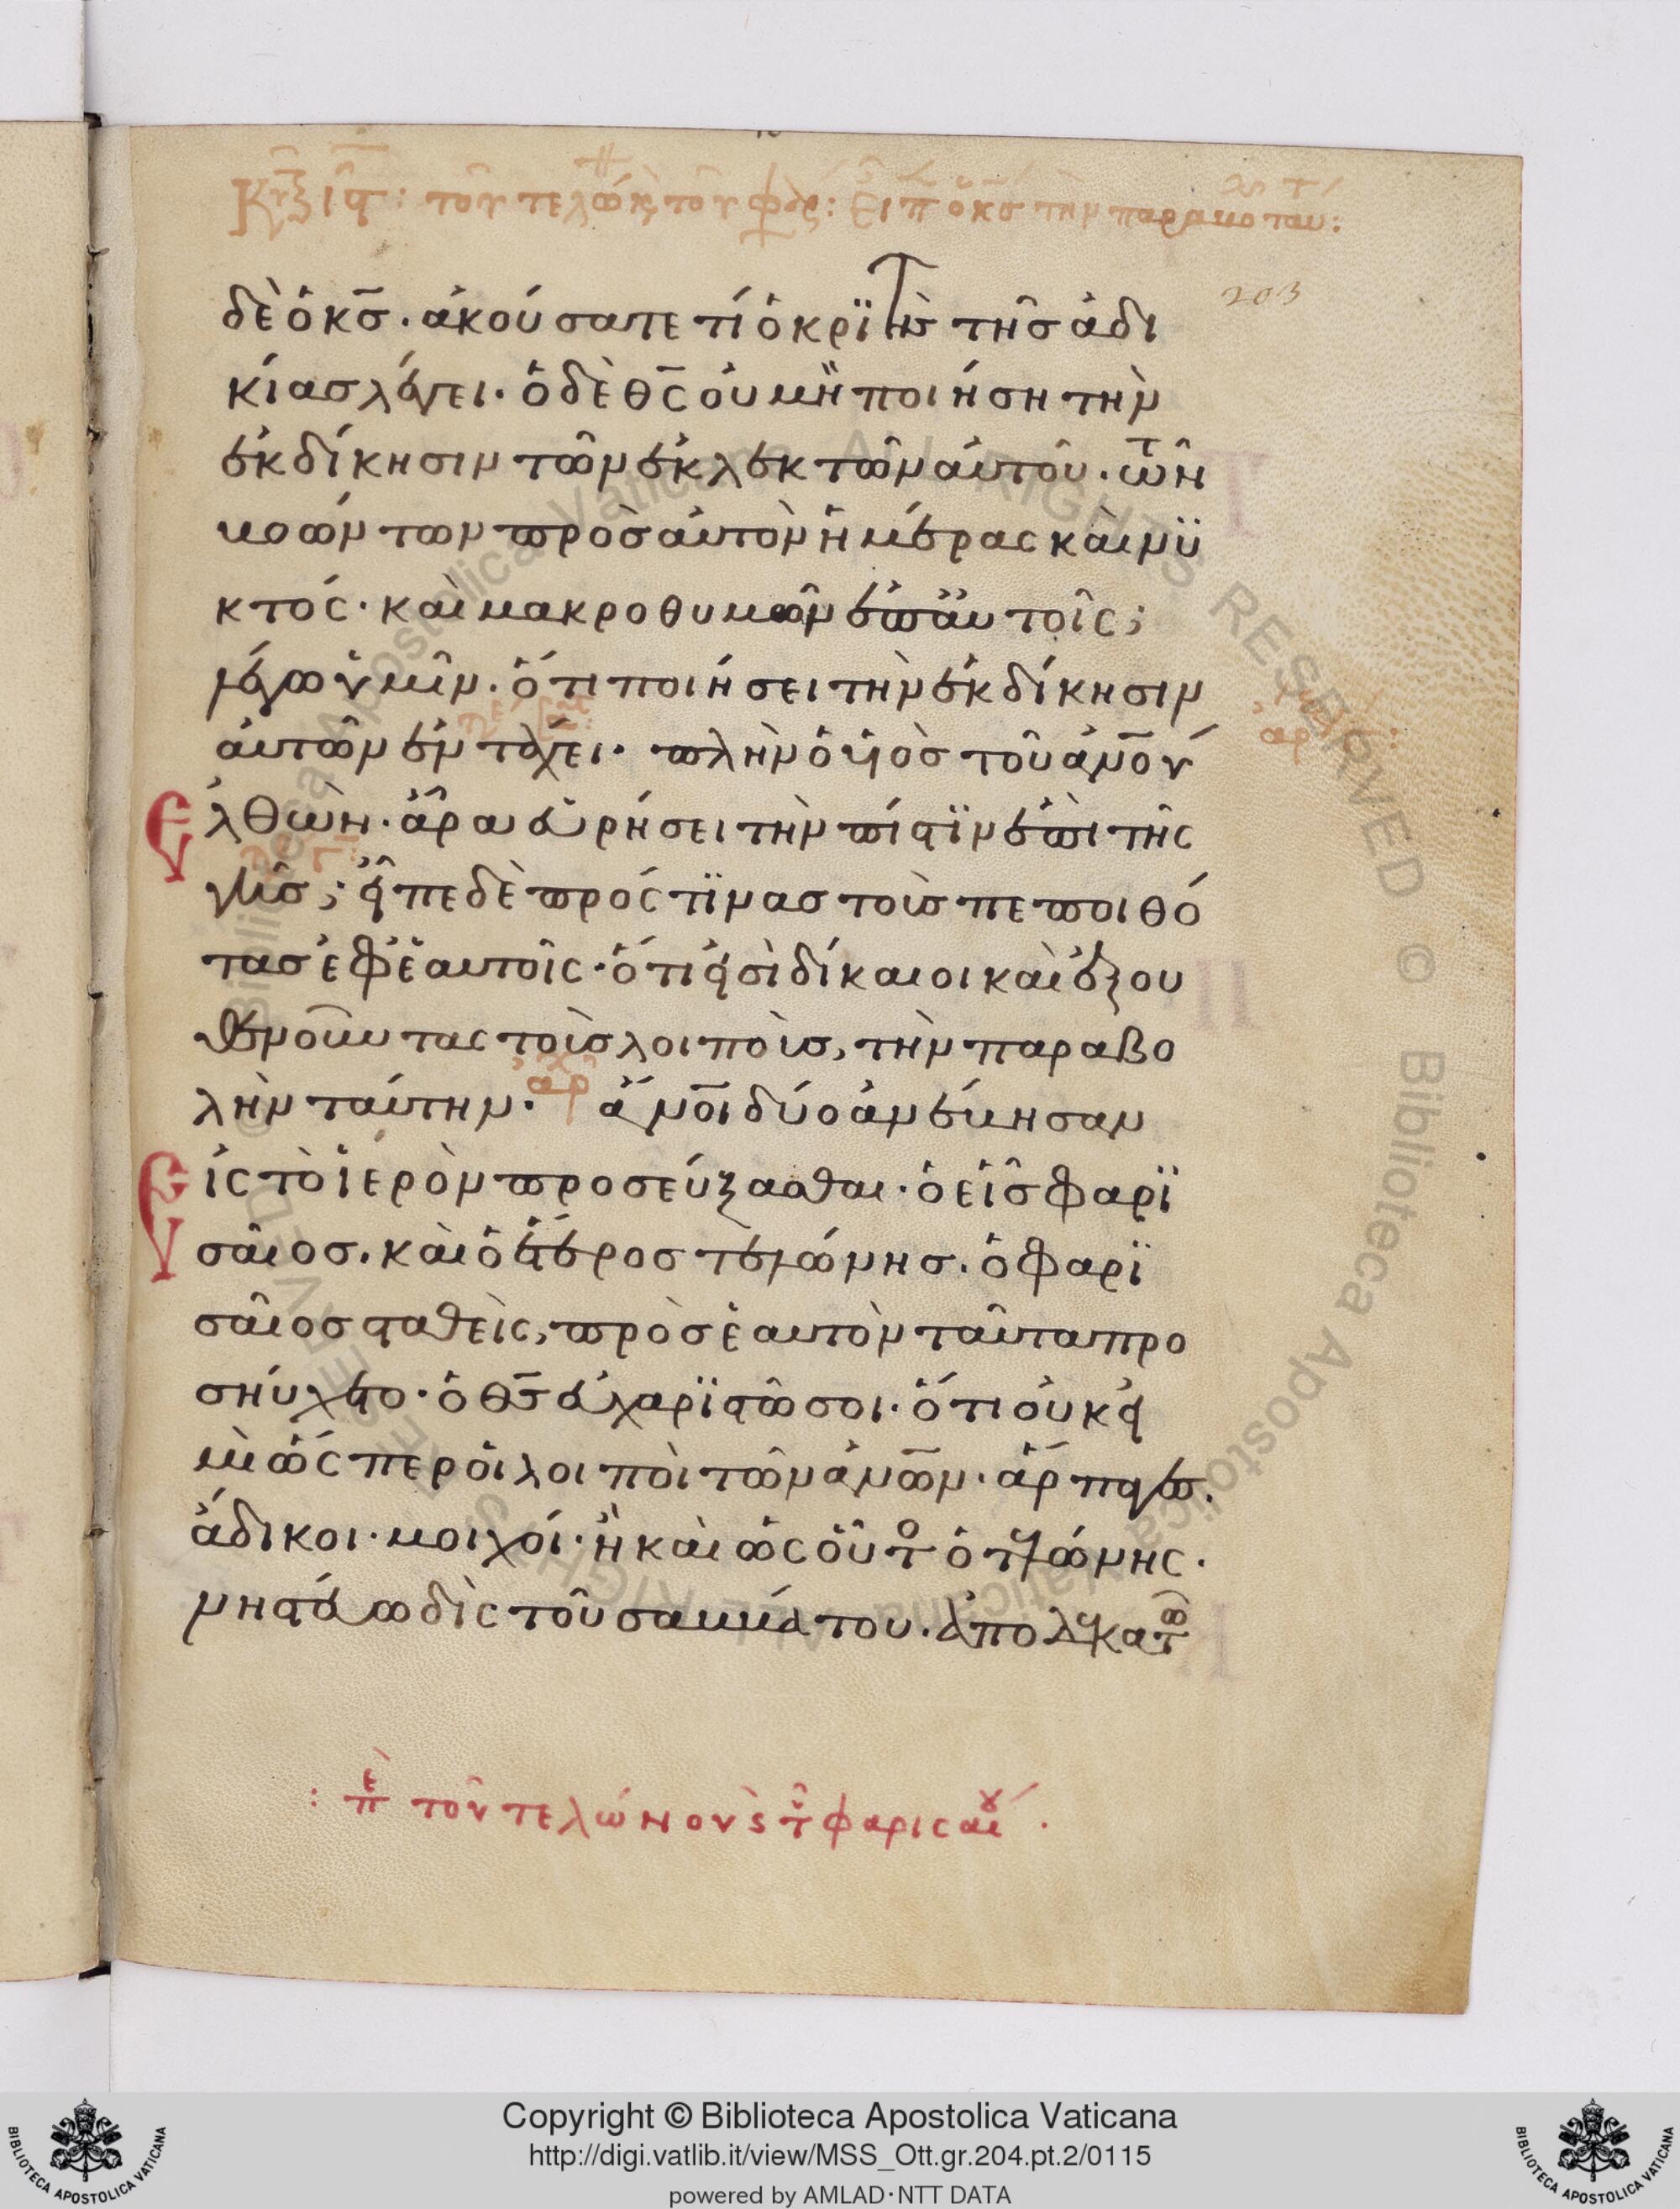 203
δὲ ὁ κς̄. ἀκούσατε τί ὁ κριτὴς τῆς ἀδι
κίας λέγει. ὁ δὲ θς̄ οὐ μὴ ποιήση τὴν
ἐκδίκησιν τῶν ἐκλεκτῶν αὐτοῦ. τῶν
βοώντων πρὸς αὐτὸν ἡμέρας καὶ νϋ
κτός. καὶ μακροθυμῶν ἐπ αὐτοῖς;
λέγω ὑμῖν. ὅτι ποιήσει τὴν ἐκδίκησιν
αὐτῶν ἐν τάχει. πλὴν ὁ υἱὸς τοῦ ἀν̄ου
ἐλθὼν. ἆρα εὑρήσει τὴν πίστϊν ἐπὶ τῆς
γῆς; εἶπε δὲ πρός τϊνας τοὺς πεποιθό
τας ἐφ ἑαυτοῖς. ὅτι εἰσὶ δίκαιοι καὶ ἐξου
θενοῦντας τοὺς λοιποὺς, τὴν παραβο
λὴν ταύτην. ἄν̄οι δύο ἀνέβησαν
εἰς τὸ ἱερὸν προσεύξασθαι. ὁ εἷς φαρϊ
σαῖος. καὶ ὁ ἕτερος τελώνης. ὁ φαρϊ
σαῖος σταθεὶς, πρὸς ἑαυτὸν ταῦτα προ
σηύχετο. ὁ θς̄ εὐχαρϊστῶ σοι. ὅτι οὐκ εἰ
μὶ ὥσπερ οἱ λοιποὶ τῶν ἀν̄ων. ἅρπαγες.
ἄδικοι. μοιχοί. ἢ καὶ ὡς οὗτο ὁ τελώνης.
νηστεύω δὶς τοῦ σαββάτου. ἀποδεκατῶ
: ἐπ τοῦ τελώνου ς τοῦ φαρισαίου.
Copyright © Biblioteca Apostolica Vaticana
http://digi.vatlib.it/view/MSS_Ott.gr.204.pt.2/0115
powered by AMLAD·NTT DATA